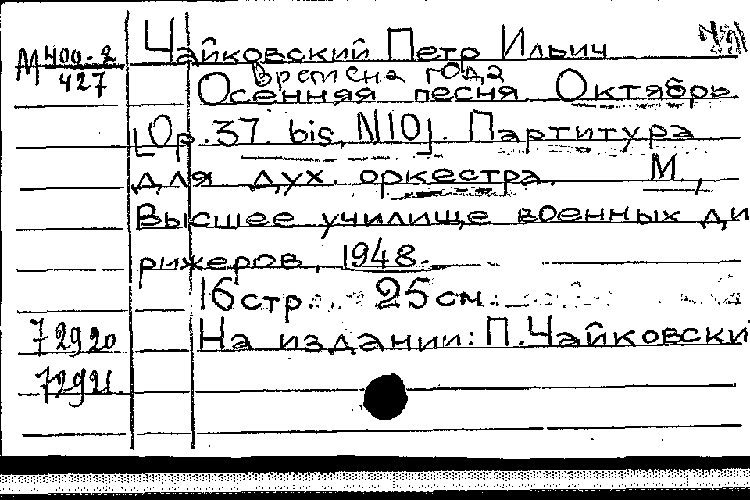 Чайковский Петр Ильич
М 400-2
427
Времена года
Осенняя песня Октябрь
[Op. 37. bis, N10]. Партитура
для дух. оркестра. М.,
Высшее училище военных ди
рижеров, 1948.
16 стр. 25 см.
72920
На издании: П. Чайковски
72921